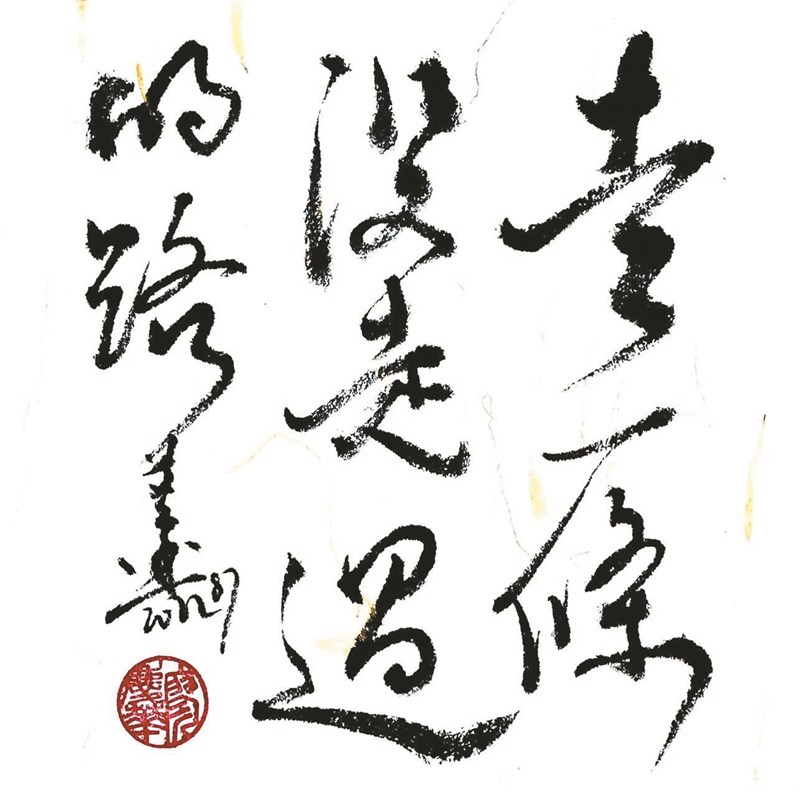 走一條
沒走過
的路
2012